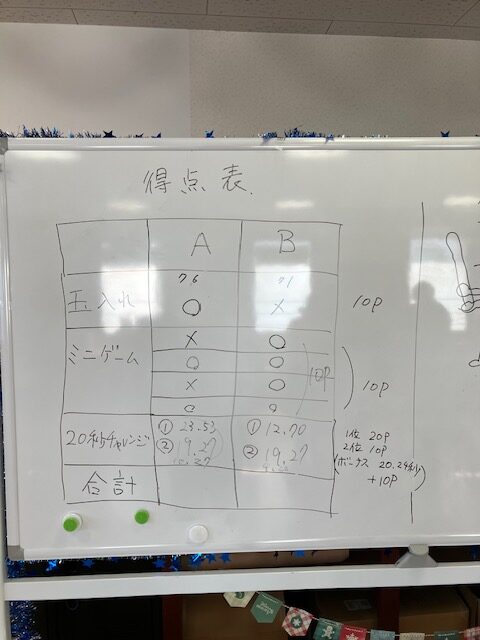 得点表
A B
76 71
玉入れ ○ × 10P
ミニゲーム × ○
○ ○
× ○ 10P 10P
○ ○
20秒チャレンジ ① 23.53 ① 12.70 1位 20P
② 19.27 ② 19.27 2位 10P
(ボーナス 20.24秒)
+10P
合計